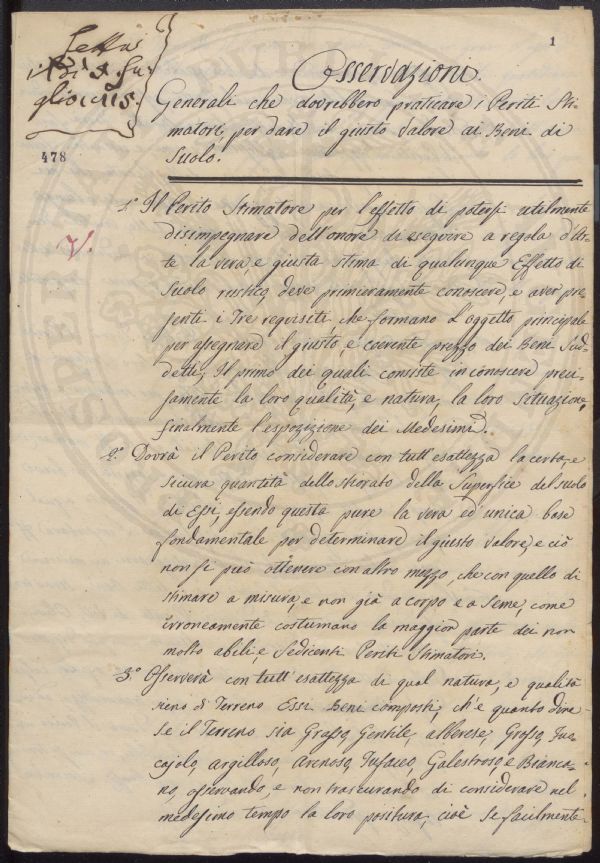 1
Letta
478
Osservazioni.
Generali che dovrebbero praticare i Periti Sti-
matori, per dare il giusto Valore ai Beni di
Suolo.
1.° Il Perito Stimatore per l'effetto di potersi utilmente
disimpegnare dell'onore di eseguire a regola d'Ar-
te la vera, e giusta stima di qualunque Effetto di
Suolo rustico, deve primieramente conoscere, e aver pre-
senti i Tre requisiti, che formano l'oggetto principale
per assegnare il giusto, e coerente prezzo dei Beni Sud-
detti, Il primo dei quali consiste in conoscere preci-
samente la loro qualità, e natura, la loro situazione,
finalmente l'espozizione dei Medesimi.
2.° Dovrà il Perito considerare con tutt'esattezza la certa, e
sicura quantità dello stiorato della Superfice del suolo
di Essi, essendo questa pure la vera ed'unica base
fondamentale per determinare il giusto Valore, e ciò
non si può ottenere con altro mezzo, che con quello di
stimare a misura, e non già a corpo e a Seme, come
irroneamente costumano la maggior parte dei non
molto abili, e Sedicenti Periti Stimatori.
3.° Osserverà con tutt'esattezza di qual natura, e qualità
sieno di Terreno Essi Beni composti, ch'è quanto dire
se il Terreno sia Grasso, Gentile, alberese, Grosso,
argilloso, Arenoso, Tufaceo, Galestroso, e Bianca-
no, osservando, e non trascurando di considerare nel
medesimo tempo la loro positura, cioè se facilmente